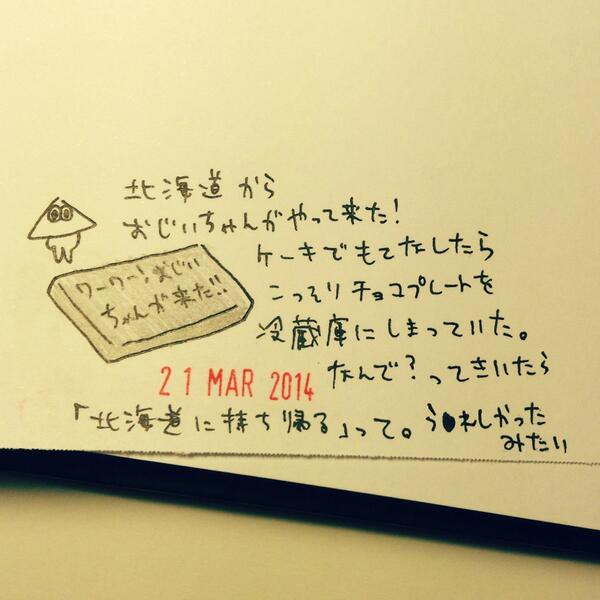 北海道から
おじいちゃんがやって来た!
ケーキでもてなしたら
こっそりチョコプレートを
冷蔵庫にしまっていた。
なんで?ってきいたら
「北海道に持ち帰る」って。うれしかった
みたい
ワーワー!おじい
ちゃんが来た!!
21 MAR 2014